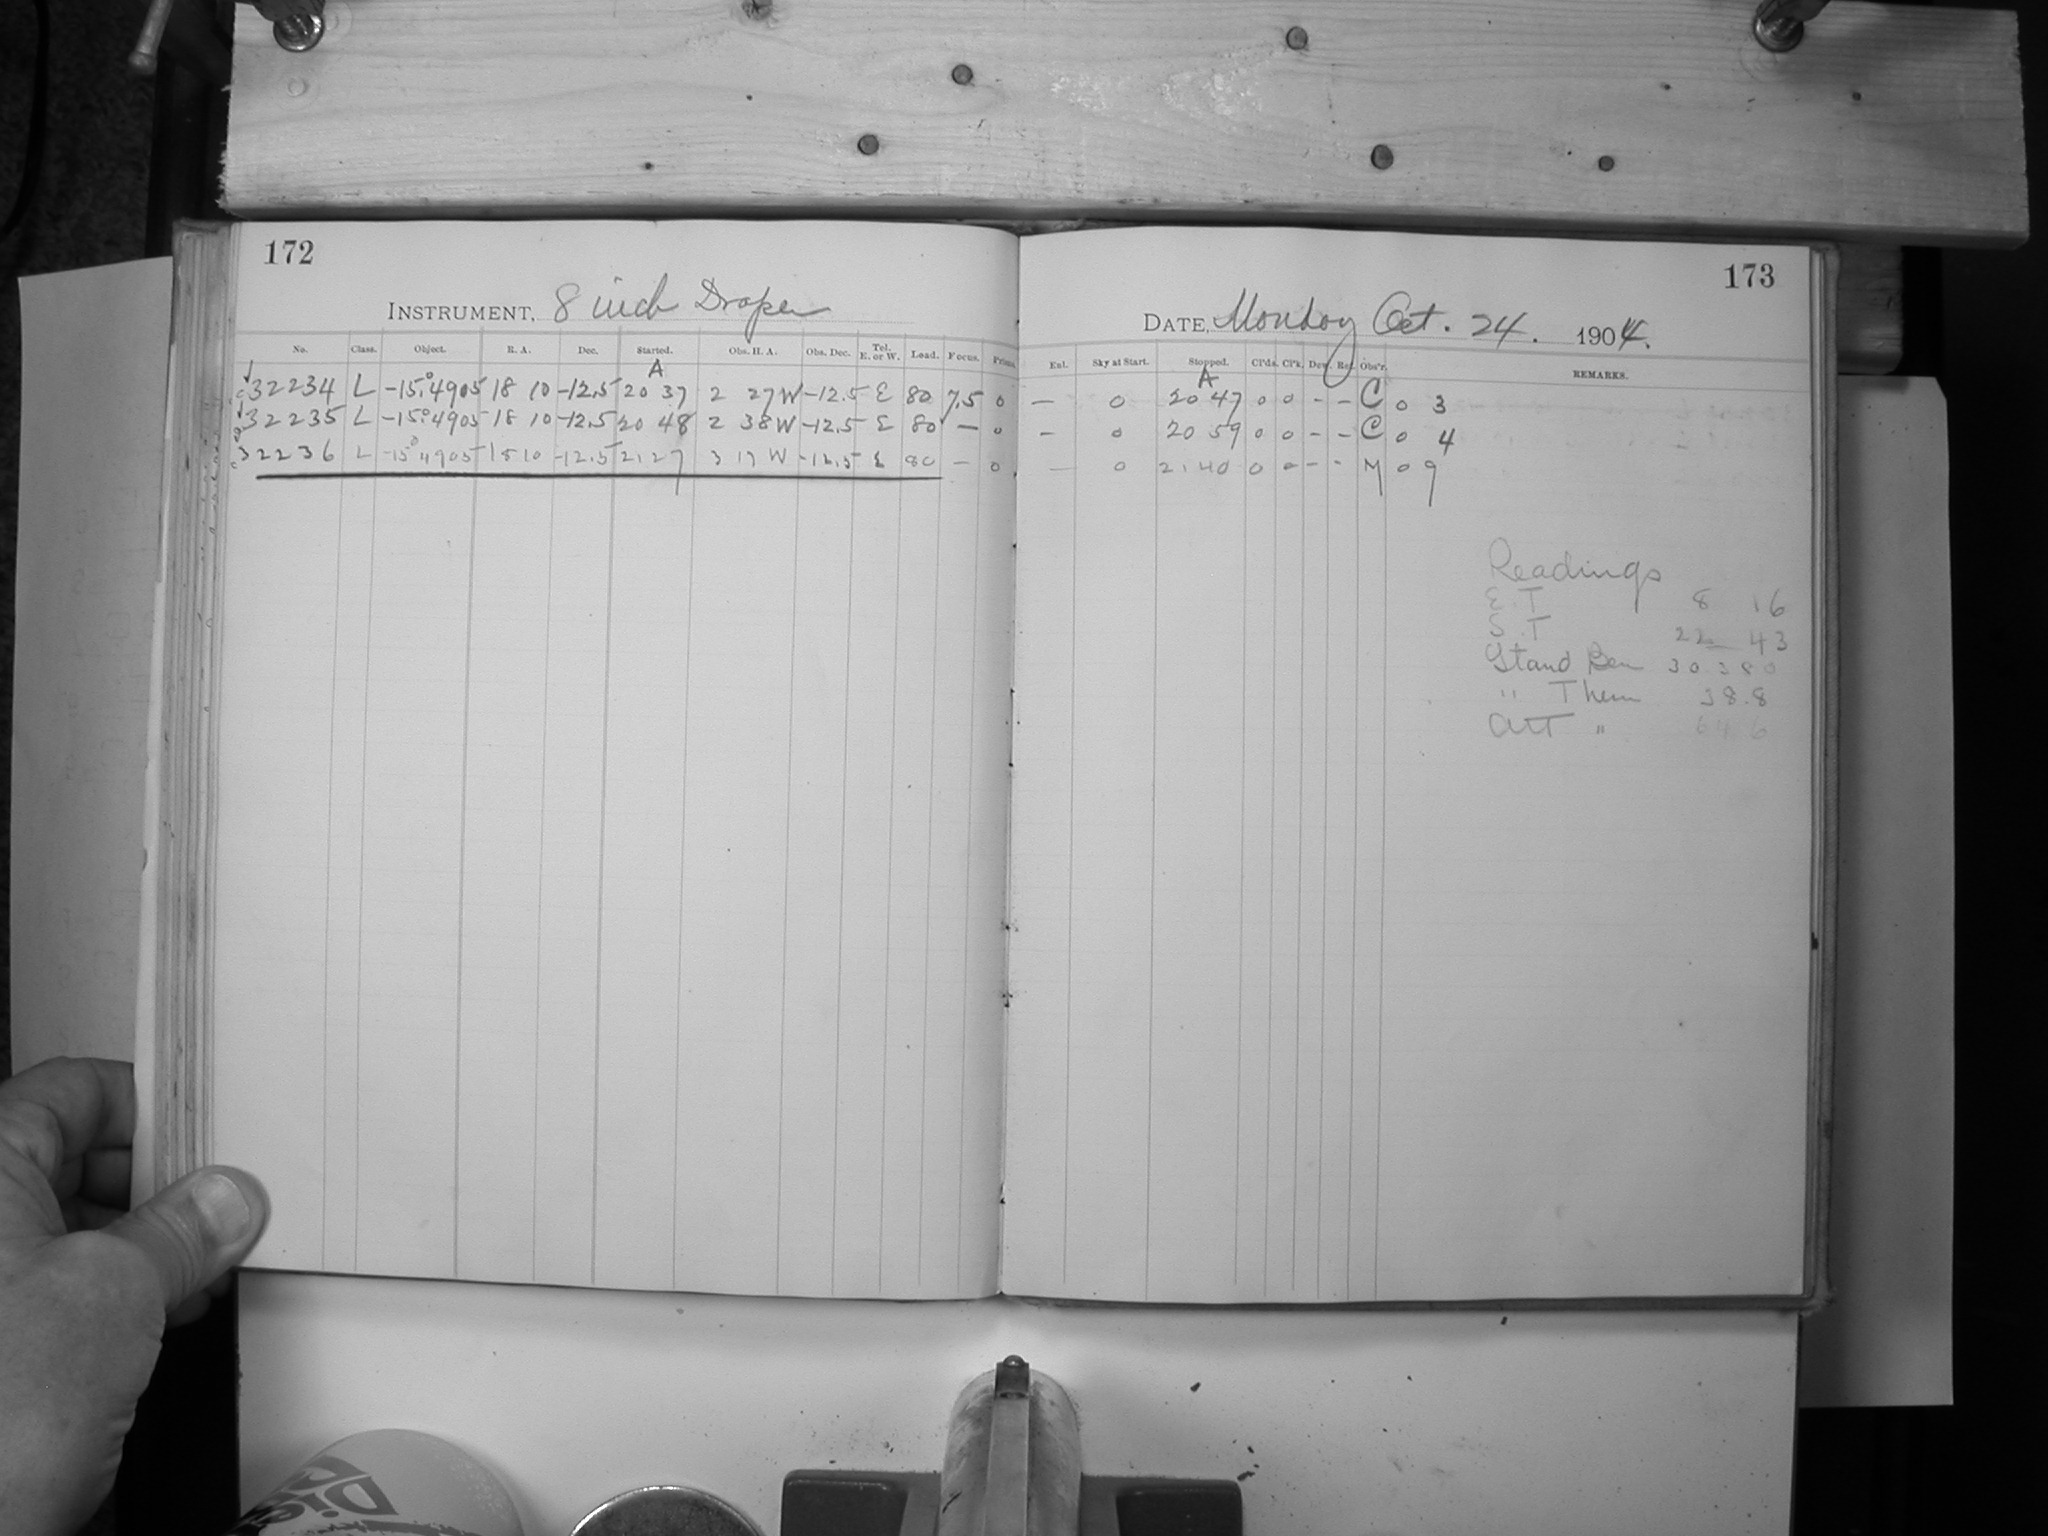 172
INSTRUMENT, 8 inch Draper
No. Class. Object. R. A. Dec. Started. Obs. H. A. Obs. Dec. Tel. E. or W. Load. Focus. Prism.
A
32234 L -15°4905 18 10 -12.5 20 37 2 27 W -12.5 E 80 7.5 0
32235 L -15°4905 18 10 -12.5 20 48 2 38 W -12.5 E 80 — 0
32236 L -15°4905 18 10 -12.5 21 27 3 17 W -12.5 E 80 — 0
173
DATE, Monday Oct. 24. 1904.
Enl. Sky at Start. Stopped. Cl'ds. Cl'k. Dew. Rel. Obs'r. REMARKS.
A
— 0 20 47 0 0 - - C 0 3
— 0 20 59 0 0 - - C 0 4
— 0 21 40 0 0 - - M 0 9
Readings
E.T 8 16
S.T 22 43
Stand 30.380
" Ther 38.8
Att " 64.6